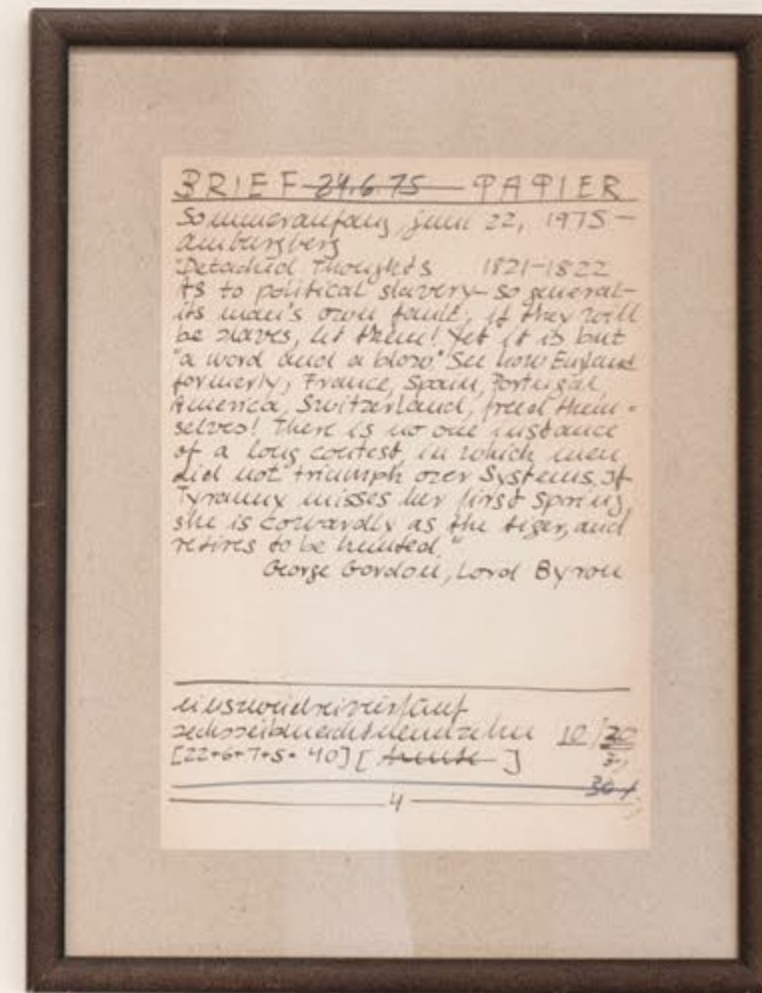 BRIEF 24.6.75 PAPIER
Sommeranfang, juni 22, 1975-
amburgberg
"Detached Thoughts 1821-1822
As to political slavery - so general -
its man's own fault; if they will
be slaves, let them! Yet it is but
"a word and a blow." See how England
formerly, France, Spain, Portugal,
America, Switzerland, freed them-
selves! There is no one instance
of a long contest, in which men
did not triumph over Systems. If
Tyranny misses her first spring,
she is cowardly as the tiger, and
retires to be hunted."
George Gordon, Lord Byron
einszweidreivierfünf
sechssiebenachtneunzehn 10/20
[22+6+7+5=40] [ ]
30
4